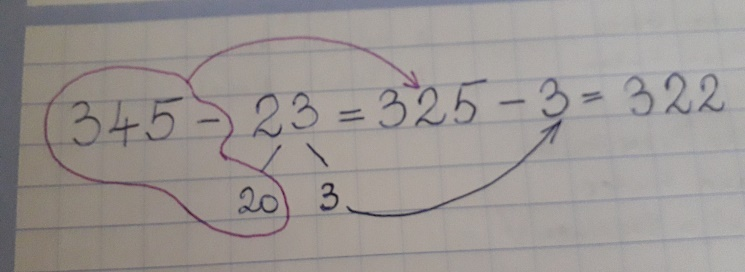 345 - 23 = 325 - 3 = 322
20 3